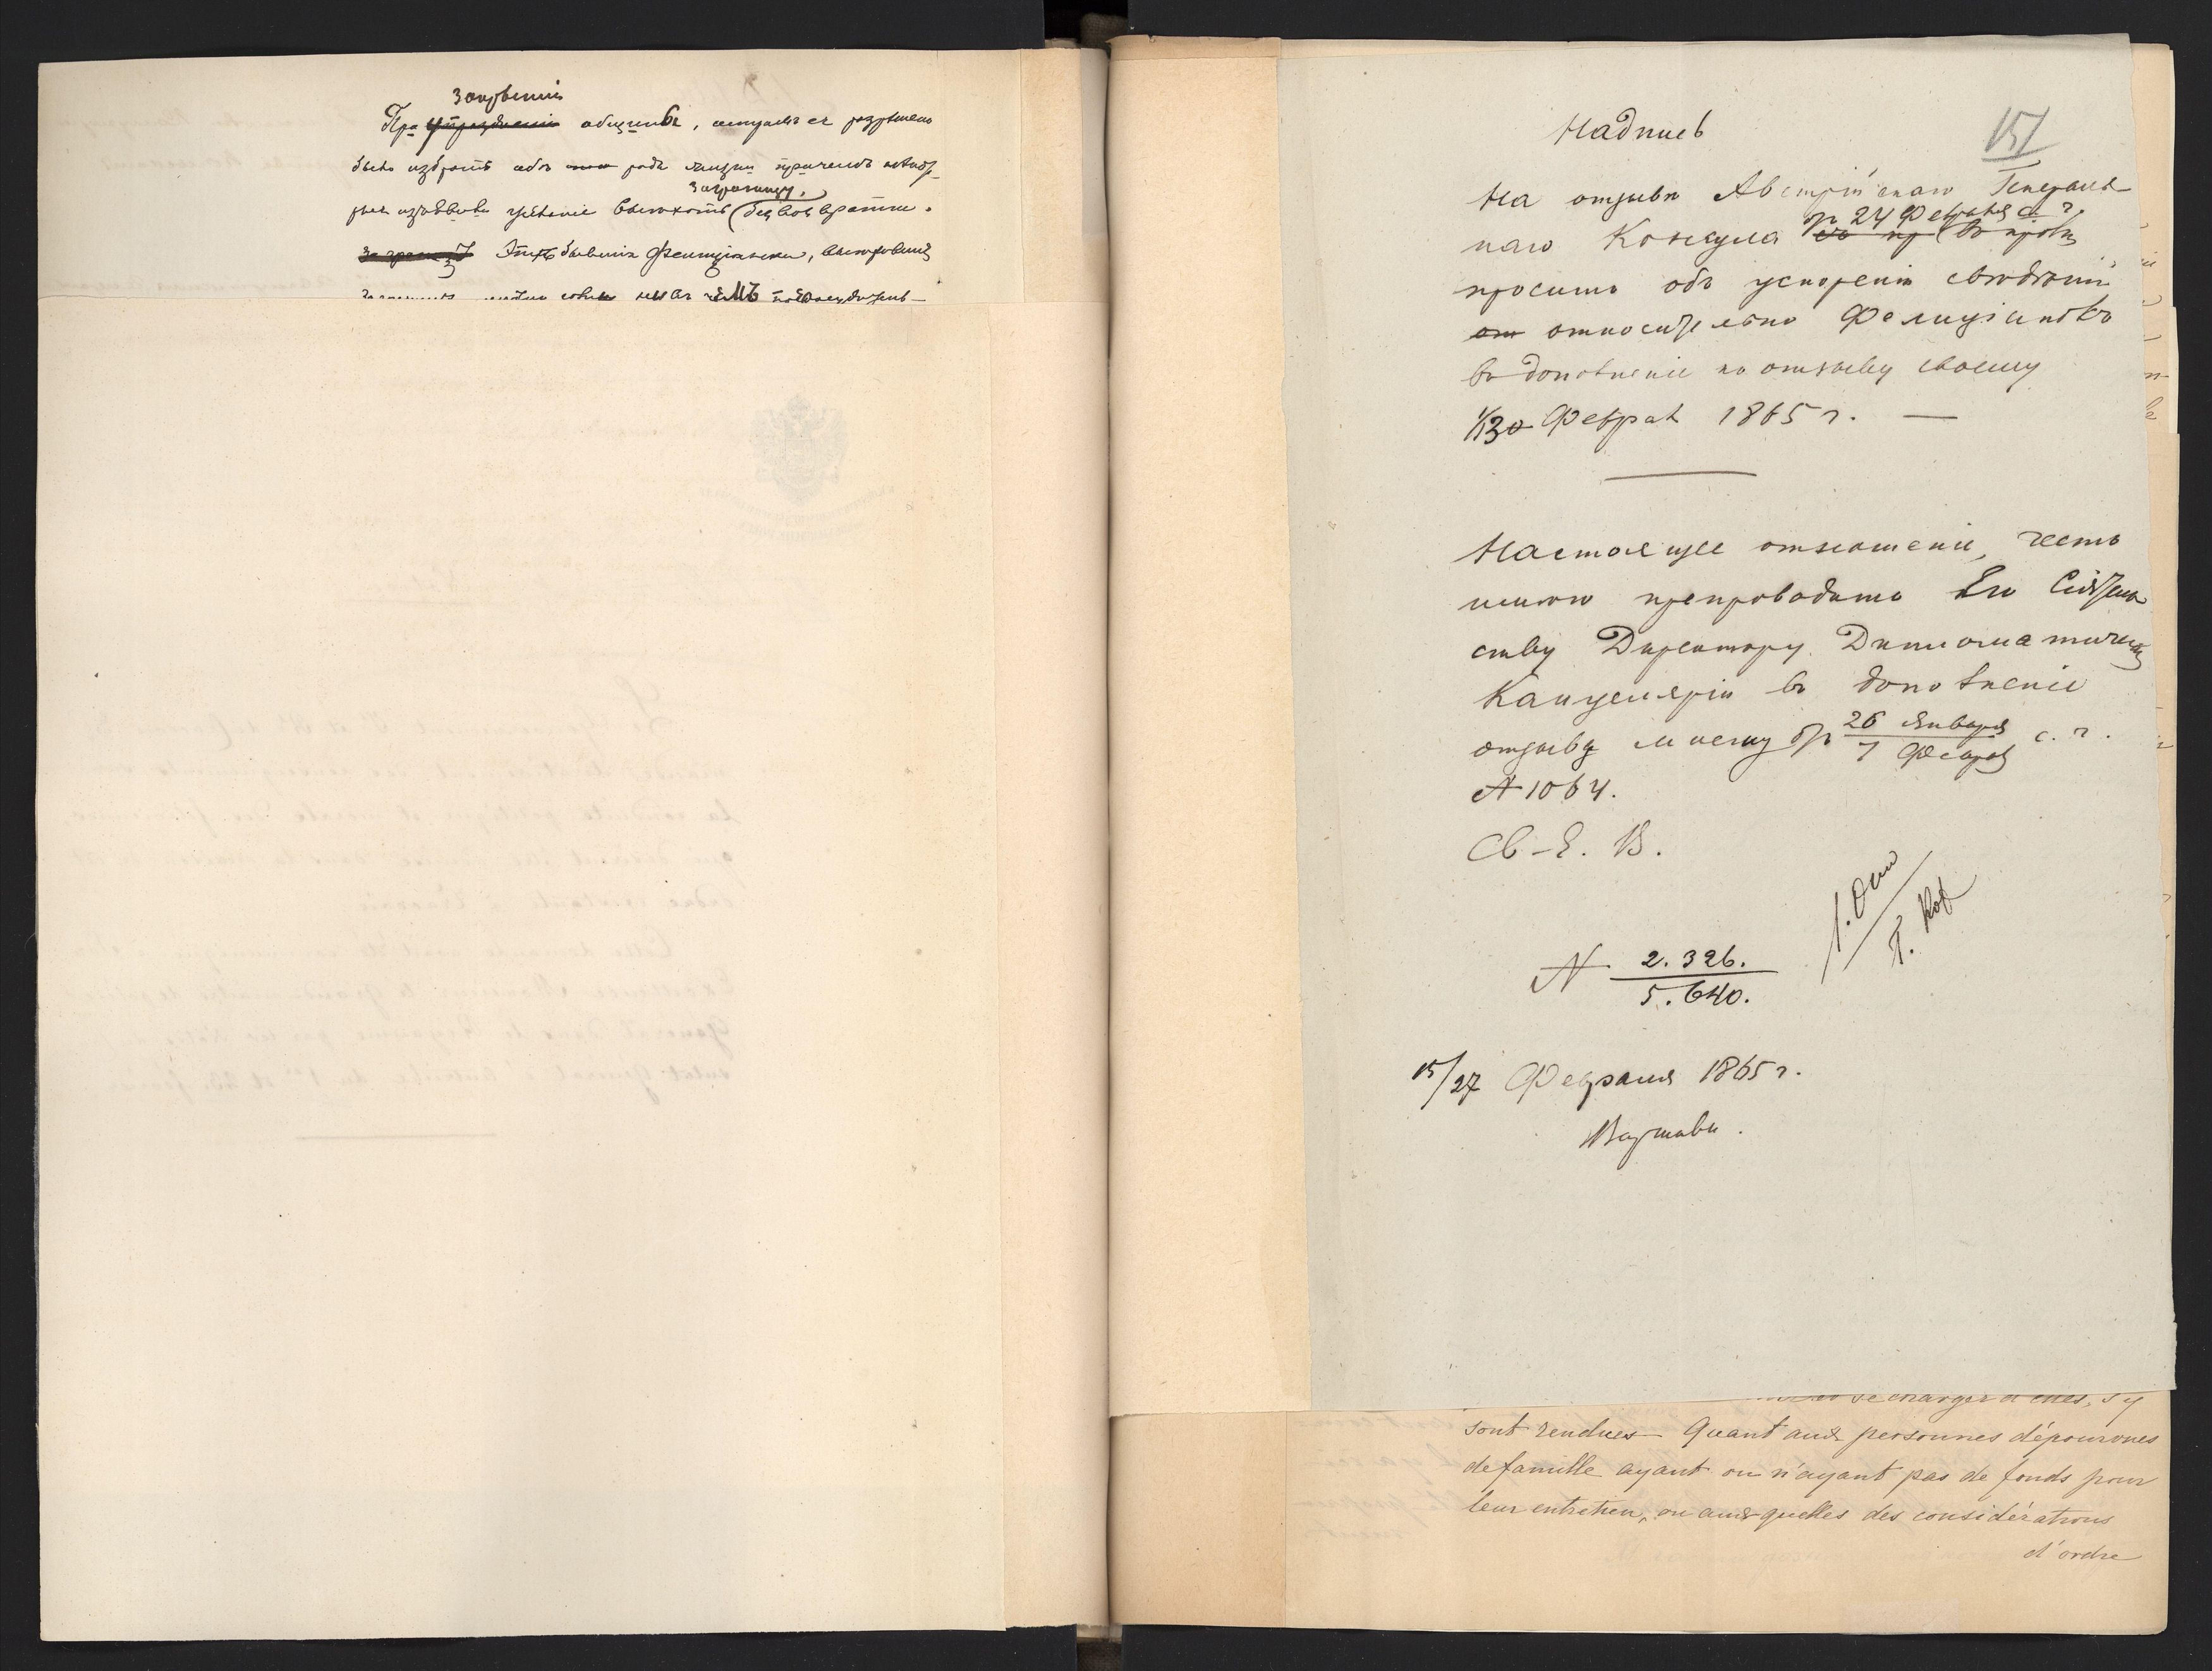 закрытіи
При упраздненіи общины, сестрамъ ея разрѣшено
было избрать себѣ родъ жизни причемъ нѣкото
рыя изъявили желаніе выѣхать (безвозвратно.
заграницу,
за границу Эти бывшія Фелиціанки, выѣхавшія
Надпись
151
На отзывѣ Австрійскаго Генераль
наго Консула
от 24 Февраля с. г.
просить объ ускореніи свѣдѣній
от относительно Фелиціанокъ
въ дополненіе къ отзыву своему
1/13 Феврал 1865 г. —
Настоящее отношеніе, честь
имѣю препроводить Его Сіятель
ству Директору Дипломатическ
Канцеляріи въ дополненіе
отзыву моему от 26 Января / 7 Февраля с. г.
№ 1064.
Св. Е. В.
№ 2.326. / 5.640.
15/27 Февраля 1865 г.
Варшава.
se charger d'elles, s'y
sont rendues — Quant aux personnes dépourvues
de famille ayant ou n'ayant pas de fonds pour
leur entretien, ou auxquelles des considérations
d'ordre